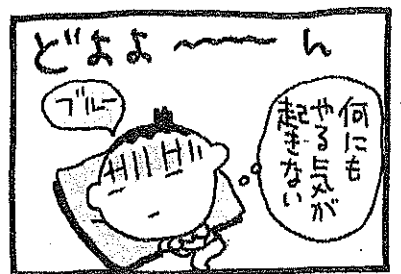 どよよ〜〜〜ん
ブルー
何にも
やる気が
起きない